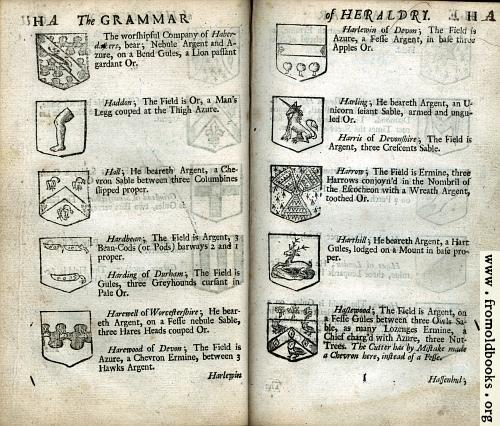 HA The GRAMMAR
The worshipful Company of Haber-
dashers, bear; Nebule Argent and A-
zure, on a Bend Gules, a Lion passant
gardant Or.
Haddon; The Field is Or, a Man's
Legg couped at the Thigh Azure.
Hall; He beareth Argent, a Che-
vron Sable between three Columbines
slipped proper.
Hardbean; The Field is Argent, 3
Bean-Cods (or Pods) barways 2 and 1
proper.
Harding of Durham; The Field is
Gules, three Greyhounds cursant in
Pale Or.
Harewell of Worcestershire; He bear-
eth Argent, on a Fesse nebule Sable,
three Hares Heads couped Or.
Harewood of Devon; The Field is
Azure, a Chevron Ermine, between 3
Hawks Argent.
Harlewin
of HERALDRY. HA
Harlewin of Devon; The Field is
Azure, a Fesse Argent, in base three
Apples Or.
Harling; He beareth Argent, an U-
nicorn seiant Sable, armed and ungu-
led Or.
Harris of Devonshire; The Field is
Argent, three Crescents Sable.
Harrow; The Field is Ermine, three
Harrows conjoyn'd in the Nombril of
the Escocheon with a Wreath Argent,
toothed Or.
Harthill; He beareth Argent, a Hart
Gules, lodged on a Mount in base pro-
per.
Hasewood; The Field is Argent, on
a Fesse Gules between three Owls Sa-
ble, as many Lozenges Ermine, a
Chief charg'd with Azure, three Nut-
Trees. The Cutter has by Mistake made
a Chevron here, instead of a Fesse.
I
Hassenhul;
www.fromoldbooks.org